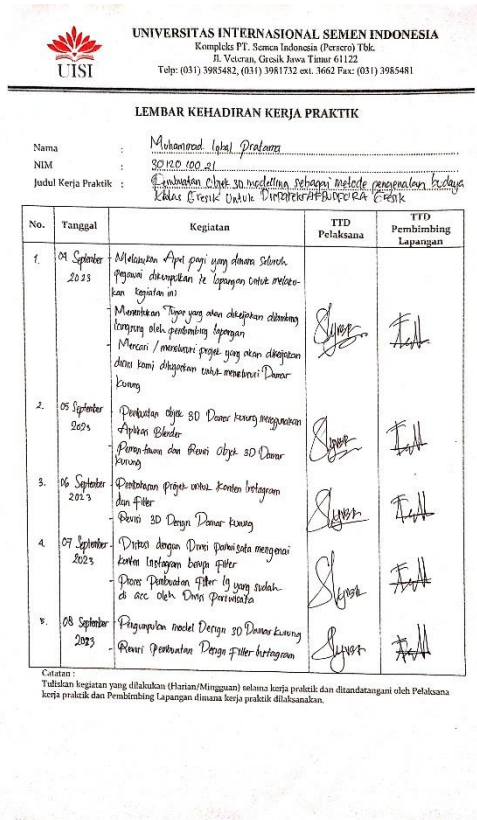 UISI
UNIVERSITAS INTERNASIONAL SEMEN INDONESIA
Kompleks PT. Semen Indonesia (Persero) Tbk.
Jl. Veteran, Gresik Jawa Timur 61122
Telp: (031) 3985482, (031) 3981732 ext. 3662 Fax: (031) 3985481
LEMBAR KEHADIRAN KERJA PRAKTIK
Nama : Muhammad Iqbal Pratama
NIM : 30120 100 21
Judul Kerja Praktik : Pembuatan objek 3D modelling sebagai metode pengenalan budaya
khas Gresik Untuk DISPAREKRAFBUDPORA Gresik
No. Tanggal Kegiatan TTD Pelaksana TTD Pembimbing Lapangan
1. 04 September 2023
- Melakukan Apel pagi yang dimana seluruh
pegawai dikumpulkan ke lapangan untuk melaku-
kan kegiatan ini
- Menentukan Tugas yang akan dikerjakan dibimbing
langsung oleh pembimbing lapangan
- Mencari / menelusuri projek yang akan dikerjakan
disini kami ditugaskan untuk menelusuri Damar
kurung
2. 05 September 2023
- Pembuatan objek 3D Damar kurung menggunakan
Aplikasi Blender
- dan Revisi Objek 3D Damar
kurung
3. 06 September 2023
- Pembahasan projek untuk konten Instagram
dan Filter
- Revisi 3D Design Damar kurung
4. 07 September 2023
- Diskusi dengan Divisi pariwisata mengenai
konten Instagram berupa Filter
- Proses Pembuatan Filter Ig yang sudah
di acc oleh Divisi Pariwisata
5. 08 September 2023
- Pengumpulan model Design 3D Damar kurung
- Revisi Pembuatan Design Filter Instagram
Catatan :
Tuliskan kegiatan yang dilakukan (Harian/Mingguan) selama kerja praktik dan ditandatangani oleh Pelaksana
kerja praktik dan Pembimbing Lapangan dimana kerja praktik dilaksanakan.